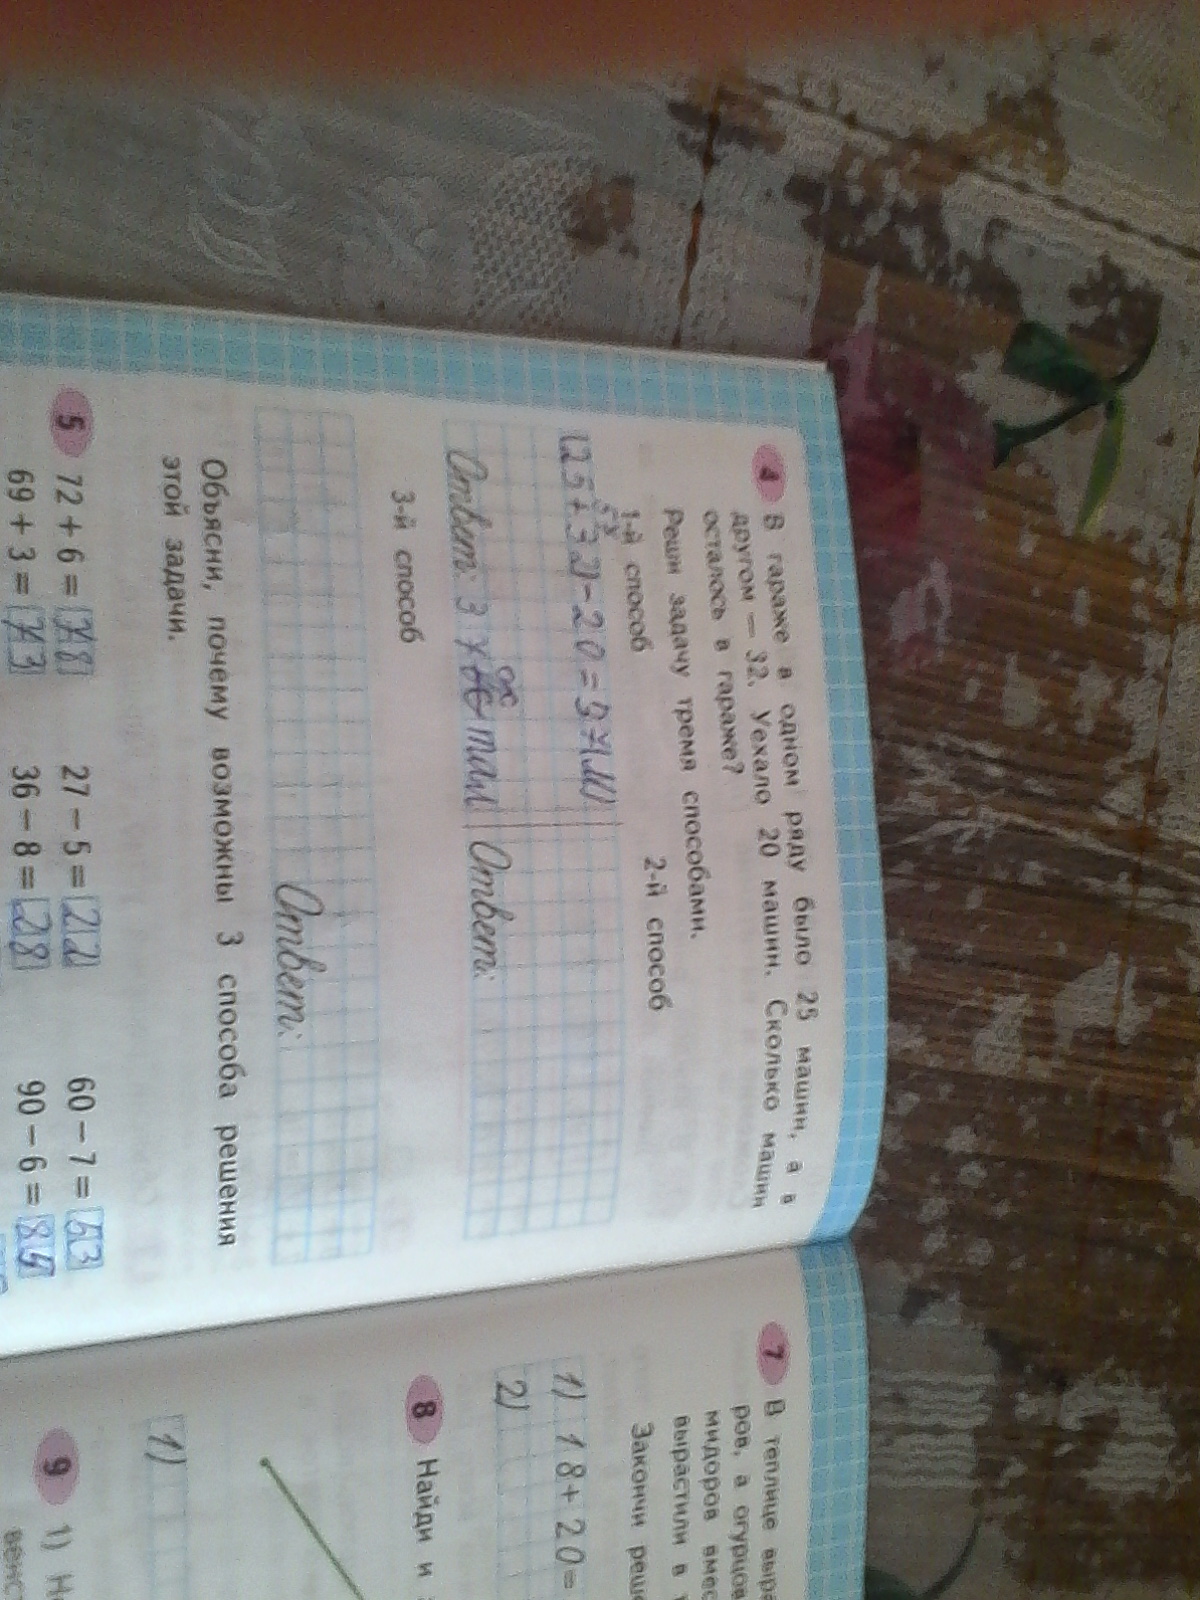 4 В гараже в одном ряду было 25 машин, а в
другом — 32. Уехало 20 машин. Сколько машин
осталось в гараже?
Реши задачу тремя способами.
1-й способ 2-й способ
(25+32)-20=37(м)
Ответ: 37 ос Ответ:
3-й способ
Ответ:
Объясни, почему возможны 3 способа решения
этой задачи.
5 72 + 6 = 78 27 − 5 = 22 60 − 7 = 53
69 + 3 = 73 36 − 8 = 28 90 − 6 = 84
7 В теплице выра
ров, а огурцов
мидоров вмес
вырастили в
Закончи реше
1) 18+20=
2)
8 Найди и
1)
9 1) Не
венс